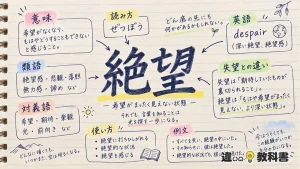 意味
希望がなくなり、
もはやどうすることもできない
と感じること。
読み方
ぜつぼう
どん底の先にも
何かがあるかもしれない。
英語
despair
(深い絶望、絶望感)
類語
絶望感・悲観・落胆
無力感・諦め など
絶望
― 希望がまったく見えない状態 ―
それでも、言葉を知ることは
光を探す一歩になる。
失望との違い
失望は「期待していたものが
裏切られること」。
絶望は「もはや希望がまったく
見えない、より深い状態」。
対義語
希望・期待・楽観
光・前向き など
使い方
絶望に打ちひしがれる
絶望的な状況
絶望を感じる
例文
どんなに暗くても、
いつかまた、空は明るくなる。
教科書